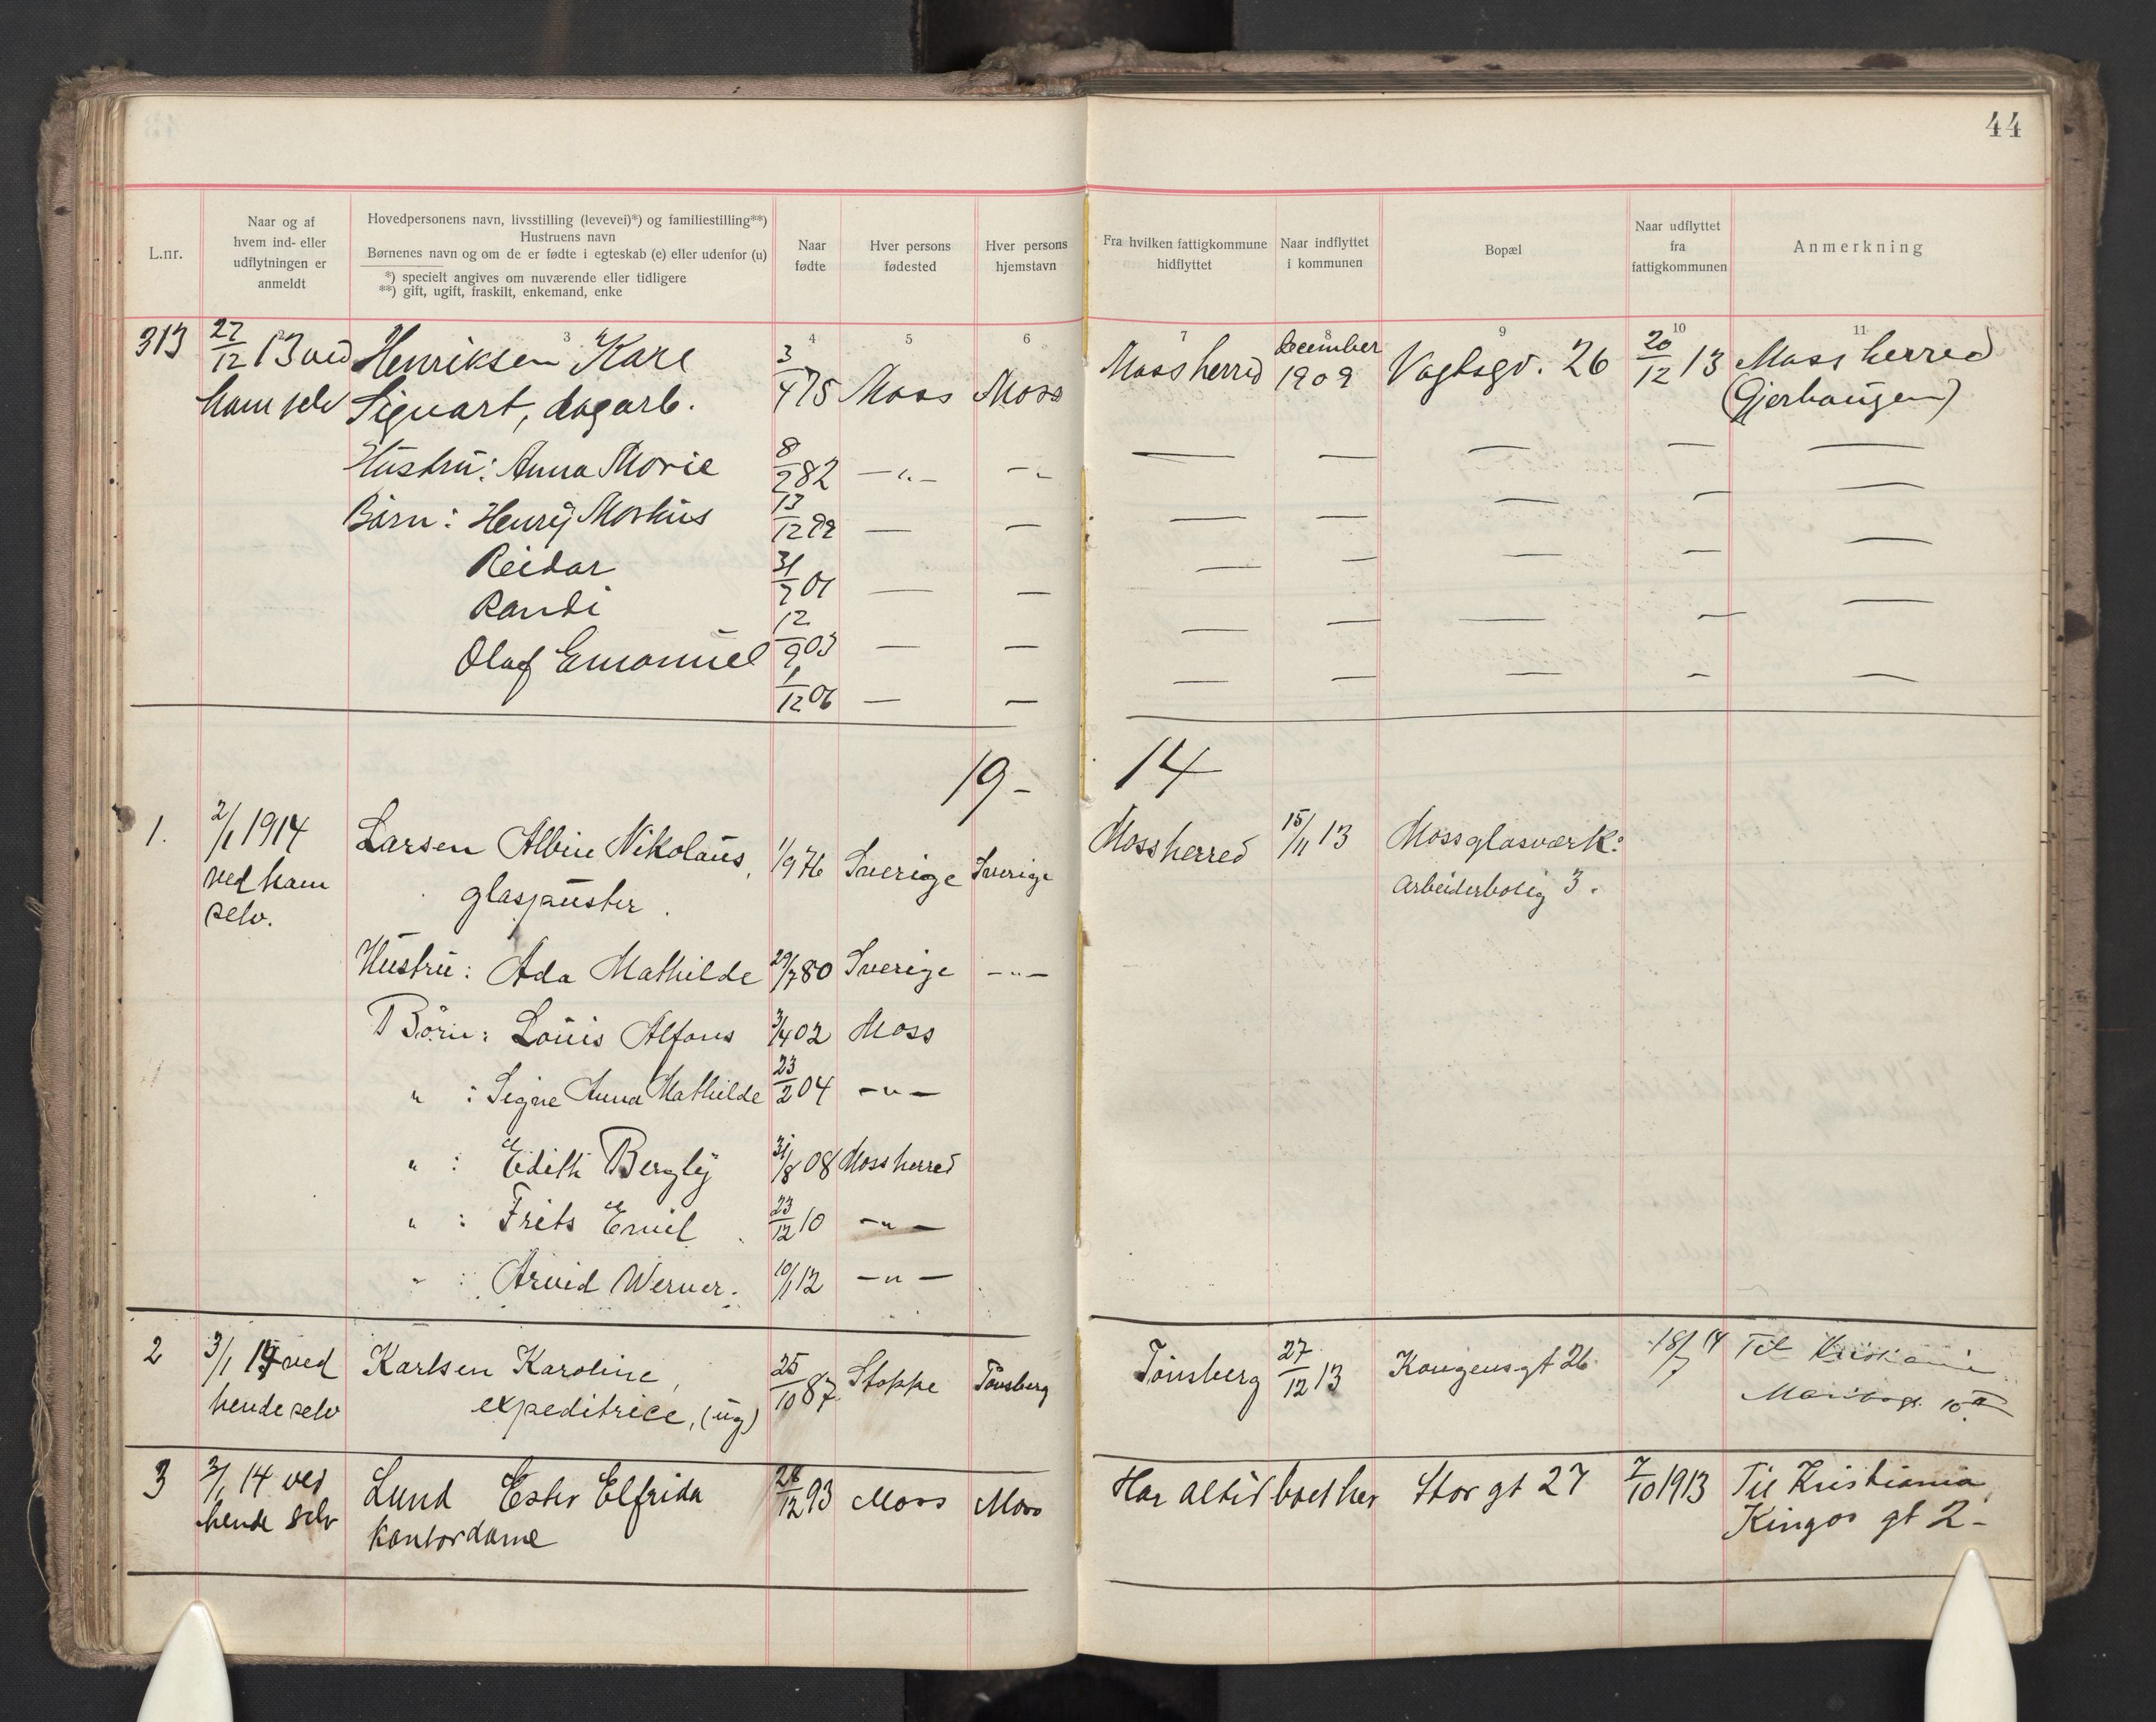 44
L.nr.
Naar og af
hvem ind- eller
udflytningen er
anmeldt
Hovedpersonens navn, livsstilling (levevei)*) og familiestilling**)
Hustruens navn
Børnenes navn og om de er fødte i egteskab (e) eller udenfor (u)
*) specielt angives om nuværende eller tidligere
**) gift, ugift, fraskilt, enkemand, enke
Naar
fødte
Hver persons
fødested
Hver persons
hjemstavn
Fra hvilken fattigkommune
hidflyttet
Naar indflyttet
i kommunen
Bopæl
Naar udflyttet
fra
fattigkommunen
Anmerkning
2 3 4 5 6 7 8 9 10 11
313 27/12 13 ved Henriksen Karl 3/4 75 Moss Moss Moss herred december 1909 Vogtsgd. 26 20/12 13 Moss herred
ham selv Sigvart, dagarb. (Gjerhaugen)
Hustru: Anna Marie 8/2 82 — " — — " —
Børn: Henry Markus 13/12 99 — —
Reidar 31/7 01 — —
Randi 12/9 03 — —
Olaf Emanuel 1/12 06 — —
19 - 14
1. 2/1 1914 Larsen Albin Nikolaus, 1/9 76 Sverige Sverige Moss herred 15/11 13 Moss glasværk:
ved ham glaspuster. Arbeiderbolig 3.
selv.
Hustru: Ada Mathilde 29/7 80 Sverige — " —
Børn: Louis Alfons 3/4 02 Moss
" : Signe Anna Mathilde 23/2 04 — " —
" : Edith Bergly 31/8 08 Moss herred
" : Frits Emil 23/12 10 — " —
" : Arvid Werner. 10/1 12 — " —
2 3/1 14 ved Karlsen Karoline, 25/10 87 Stokke Tønsberg Tønsberg 27/12 13 Kongensgt 26 18/7 14 Til Kristiania
hende selv expeditrice, (ug) 10 II
3 3/1 14 ved Lund Ester Elfrida 28/12 93 Moss Moss Har altid boet her Storgt 27 7/10 1913 Til Kristiania
hende selv kontordame Kingos gt 2 -